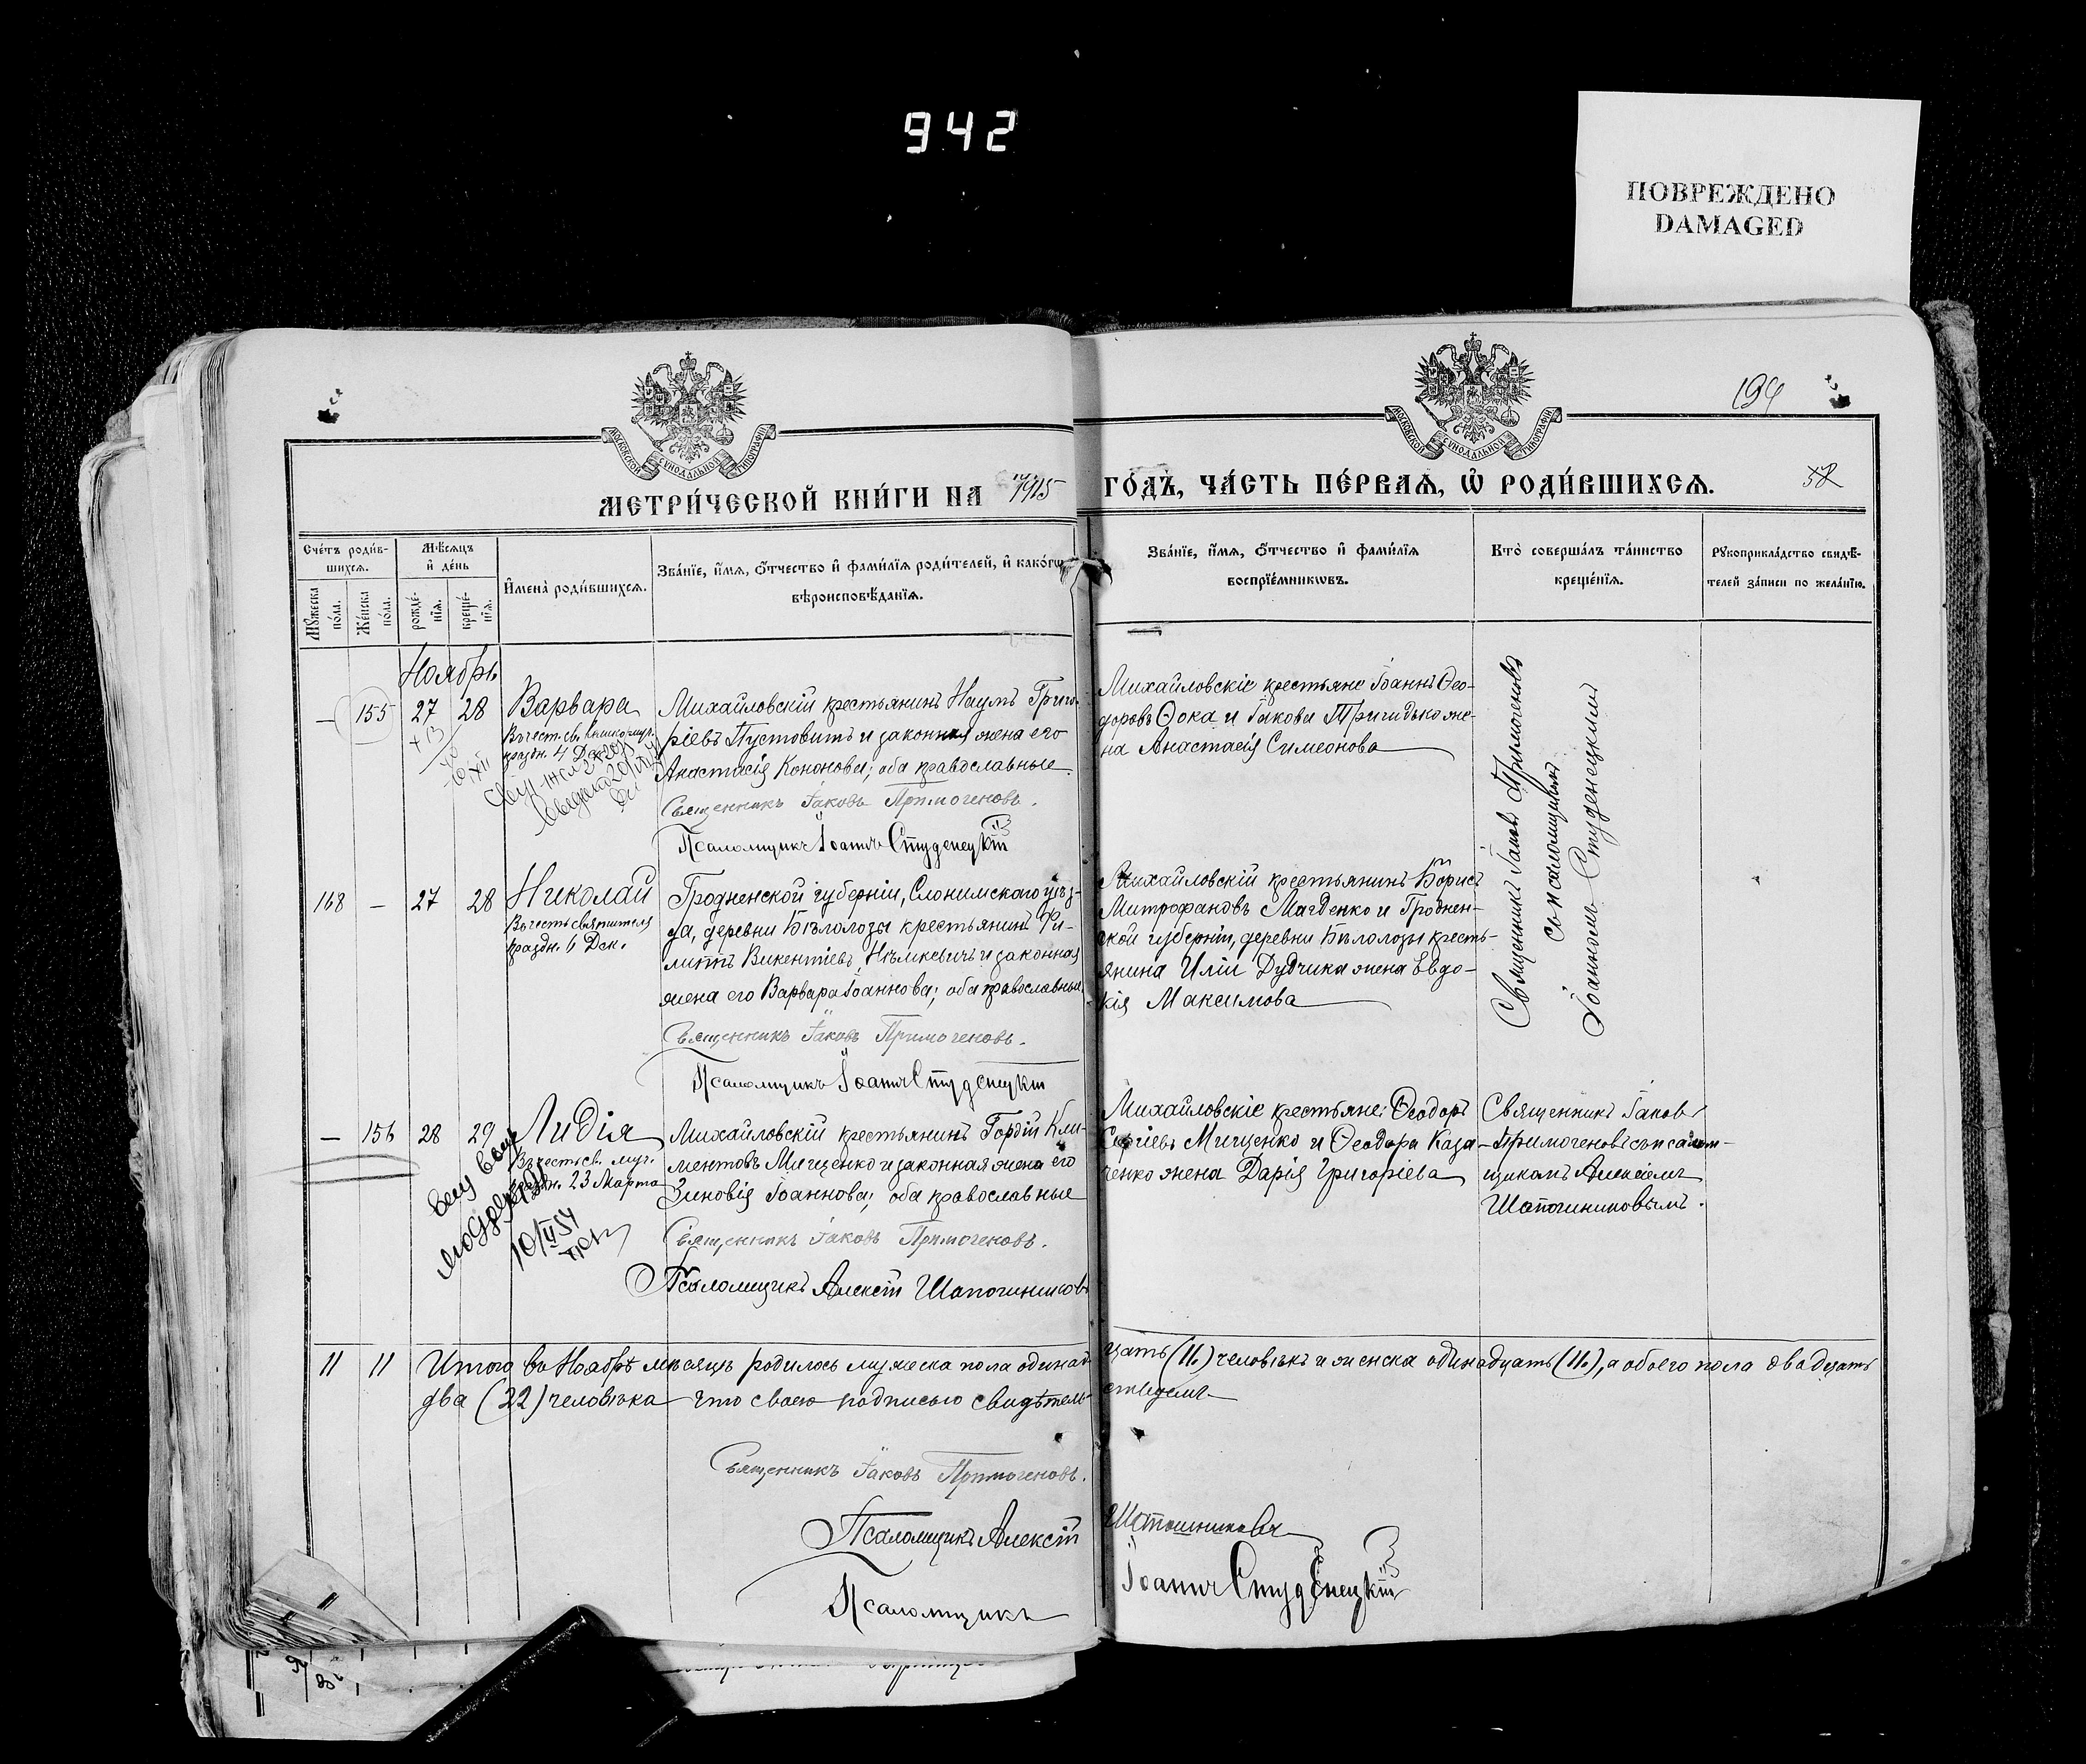 942
ПОВРЕЖДЕНО
DAMAGED
МОСКОВСКОЙ СѴНОДАЛЬНОЙ ТИПОГРАФІИ
МОСКОВСКОЙ СѴНОДАЛЬНОЙ ТИПОГРАФІИ
194
МЕТРИ́ЧЕСКОЙ КНИ́ГИ НА 1915 ГО́ДЪ, ЧА́СТЬ ПЕ́РВАѦ, Ѡ҆ РОДИ́ВШИХСѦ.
58
Сче́тъ роди́в-
шихсѧ.
Мꙋ́жеска
по́ла.
Же́нска
по́ла.
Мѣ́сѧцъ
и҆ де́нь
рожде́-
нїѧ.
креще́-
нїѧ.
И҆мена̀ роди́вшихсѧ.
Зва́нїе, и҆́мѧ, ѻ҆́тчество и҆ фами́лїѧ роди́телей, и҆ како́гѡ
вѣроисповѣ́данїѧ.
Зва́нїе, и҆́мѧ, ѻ҆́тчество и҆ фами́лїѧ
воспрїе́мникѡвъ.
Кто̀ соверша́лъ та́инство
креще́нїѧ.
Рꙋкоприкла́дство свидѣ́-
телей за́писи по жела́нїю.
Ноябрь
— 155 27 28 Варвара
праздн. 4 Дек.
Михайловскій крестьянинъ Наумъ Григо-
ріевъ Пустовитъ и законная жена его
Анастасія Кононова; оба православные.
Священникъ Іаковъ Примогеновъ.
Псаломщикъ Іоаннъ Студенецкій
Михайловскіе крестьяне Іоаннъ Ѳео-
доровъ Ѳока и Іакова Тригидько же-
на Анастасія Симеонова
Священникъ Іаковъ Примогеновъ
съ псаломщикомъ
Іоанномъ Студенецкимъ
168 — 27 28 Николай
Въ честь святителя
праздн. 6 Дек.
Гродненской губерніи, Слонимскаго уѣз-
да, деревни Бѣлолозы крестьянинъ Фи-
липпъ Викентіевъ Нѣмкевичъ и законная
жена его Варвара Іоаннова; оба православные
Священникъ Іаковъ Примогеновъ.
Псаломщикъ Іоаннъ Студенецкій
Михайловскій крестьянинъ Борисъ
Митрофановъ Магденко и Гроднен-
ской губерніи, деревни Бѣлолозы кресть-
янина Иліи Дудчика жена Евдо-
кія Максимова
— 156 28 29 Лидія
Въ честь св. муч.
праздн. 23 Марта
10/II 54
Михайловскій крестьянинъ Гордій Кли-
ментовъ Мищенко и законная жена его
Зиновія Іоаннова; оба православные
Священникъ Іаковъ Примогеновъ.
Псаломщикъ Алексій Шапошниковъ
Михайловскіе крестьяне: Ѳеодоръ
Сергіевъ Мищенко и Ѳеодора Каза-
ченко жена Дарія Григоріева
Священникъ Іаковъ
Примогеновъ съ псалом-
щикомъ Алексіемъ
Шапошниковымъ.
11 11 Итого въ Ноябрѣ мѣсяцѣ родилось мужеска пола одинад-цать (11.) человѣкъ и женска одинадцать (11.), а обоего пола двадцать
два (22) человѣка что своею подписью свидѣтель-ствуемъ
Священникъ Іаковъ Примогеновъ.
Псаломщикъ Алексій Шапошниковъ
Псаломщикъ Іоаннъ Студенецкій